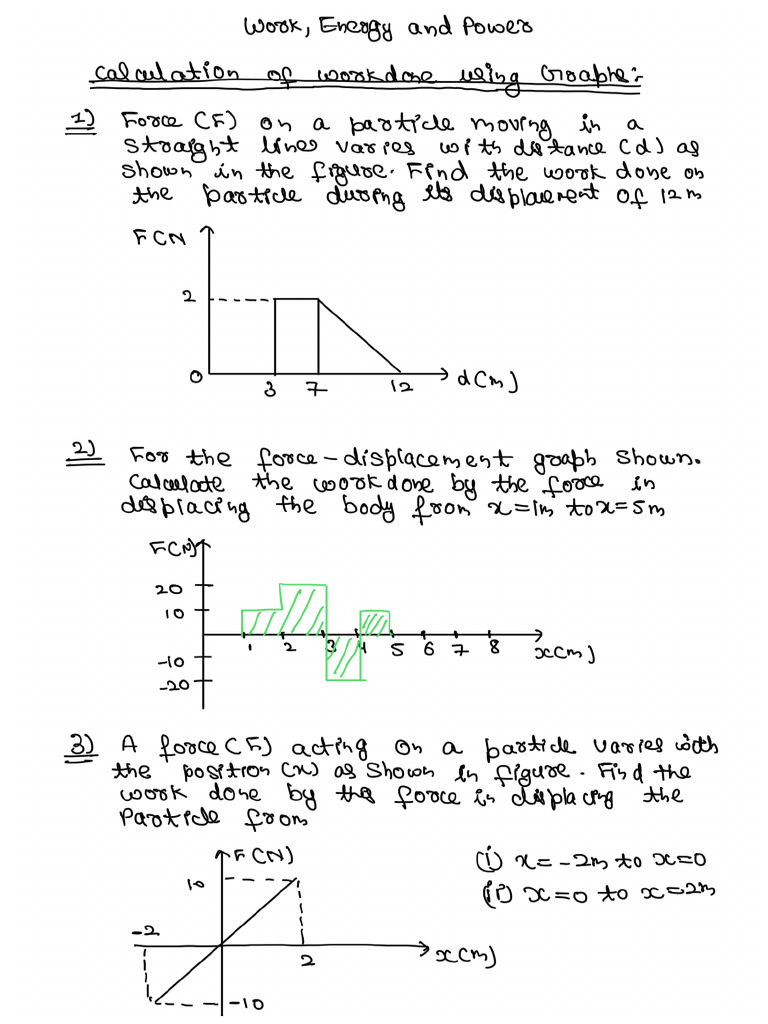 Work, Energy and Power
Calculation of workdone using Graphs:-
1) Force (F) on a particle moving in a
straight lines varies with distance (d) as
shown in the figure. Find the work done on
the particle during its displacement of 12m
F(N
2
0
3 7 12 d(m)
2) For the force-displacement graph shown.
Calculate the workdone by the force in
displacing the body from x=1m to x=5m
F(N)
20
10
1 2 3 4 5 6 7 8 x(m)
-10
-20
3) A force (F) acting on a particle varies with
the position (x) as shown in figure. Find the
work done by the force in displacing the
Particle from
F(N)
(i) x=-2m to x=0
10
(ii) x=0 to x=2m
-2
2 x(m)
-10